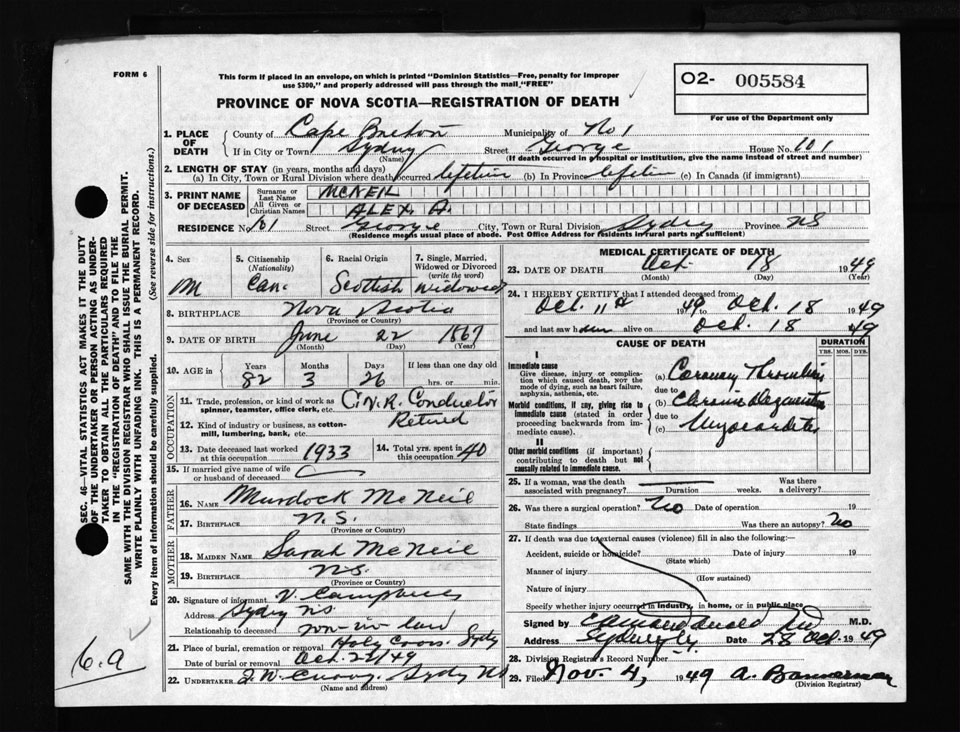 FORM 6
This form if placed in an envelope, on which is printed "Dominion Statistics—Free, penalty for improper
use $300," and properly addressed will pass through the mail "FREE"
O2- 005584
For use of the Department only
PROVINCE OF NOVA SCOTIA—REGISTRATION OF DEATH
1. PLACE OF DEATH
County of Cape Breton Municipality of No 1
If in City or Town Sydney Street George House No. 101
(Name) (If death occurred in a hospital or institution, give the name instead of street and number)
2. LENGTH OF STAY (in years, months and days)
(a) In City, Town or Rural Division where death occurred lifetime (b) In Province lifetime (c) In Canada (if immigrant)
3. PRINT NAME OF DECEASED
Surname or Last Name MCNEIL
All Given or Christian Names ALEX. A.
RESIDENCE No. 101 Street George City, Town or Rural Division Sydney Province NS
(Residence means usual place of abode. Post Office Address for residents in rural parts not sufficient)
4. Sex M
5. Citizenship (Nationality) Can.
6. Racial Origin Scottish
7. Single, Married, Widowed or Divorced (write the word) widowed
8. BIRTHPLACE Nova Scotia
(Province or Country)
9. DATE OF BIRTH June 22 1867
(Month) (Day) (Year)
10. AGE in Years 82 Months 3 Days 26 If less than one day
hrs. or min.
OCCUPATION
11. Trade, profession or kind of work as spinner, teamster, office clerk, etc. C.N.R. Conductor
12. Kind of industry or business, as cotton-mill, lumbering, bank, etc. Retired
13. Date deceased last worked at this occupation 1933
14. Total yrs. spent in this occupation 40
15. If married give name of wife or husband of deceased
FATHER
16. NAME Murdock McNeil
17. BIRTHPLACE N.S.
(Province or Country)
MOTHER
18. MAIDEN NAME Sarah McNeil
19. BIRTHPLACE N.S.
(Province or Country)
20. Signature of informant V. Campbell
Address Sydney NS
Relationship to deceased son-in-law
21. Place of burial, cremation or removal Holy Cross, Sydney
Date of burial or removal Oct. /49
22. UNDERTAKER Sydney NS
(Name and address)
MEDICAL CERTIFICATE OF DEATH
23. DATE OF DEATH Oct 18 1949
(Month) (Day) (Year)
24. I HEREBY CERTIFY that I attended deceased from:
Oct. 11th 1949 to Oct. 18 1949
and last saw him alive on Oct. 18 1949
CAUSE OF DEATH
DURATION
YRS. MOS. DYS.
I
Immediate cause
Give disease, injury or complication which caused death, NOT the mode of dying, such as heart failure, asphyxia, asthenia, etc.
(a) Coronary Thrombosis
due to
Morbid conditions, if any, giving rise to immediate cause (stated in order proceeding backwards from immediate cause).
(b) Chronic Degenerative
due to
(c) Myocarditis
II
Other morbid conditions (if important) contributing to death but not causally related to immediate cause.
25. If a woman, was the death associated with pregnancy? Duration weeks. Was there a delivery?
26. Was there a surgical operation? No Date of operation 19
State findings Was there an autopsy? No
27. If death was due to external causes (violence) fill in also the following:—
Accident, suicide or homicide? Date of injury 19
(State which)
Manner of injury
(How sustained)
Nature of injury
Specify whether injury occurred in industry, in home, or in public place
Signed by M.D.
Address Sydney Date 28 Oct. 1949
28. Division Registrar's Record Number
29. Filed Nov. 4, 1949 A. Bannerman
(Division Registrar)
SEC. 46—VITAL STATISTICS ACT MAKES IT THE DUTY
OF THE UNDERTAKER OR PERSON ACTING AS UNDER-
TAKER TO OBTAIN ALL THE PARTICULARS REQUIRED
IN THE "REGISTRATION OF DEATH" AND TO FILE THE
SAME WITH THE DIVISION REGISTRAR WHO SHALL ISSUE THE BURIAL PERMIT.
WRITE PLAINLY WITH UNFADING INK. THIS IS A PERMANENT RECORD.
Every item of information should be carefully supplied. (See reverse side for instructions.)
6.a